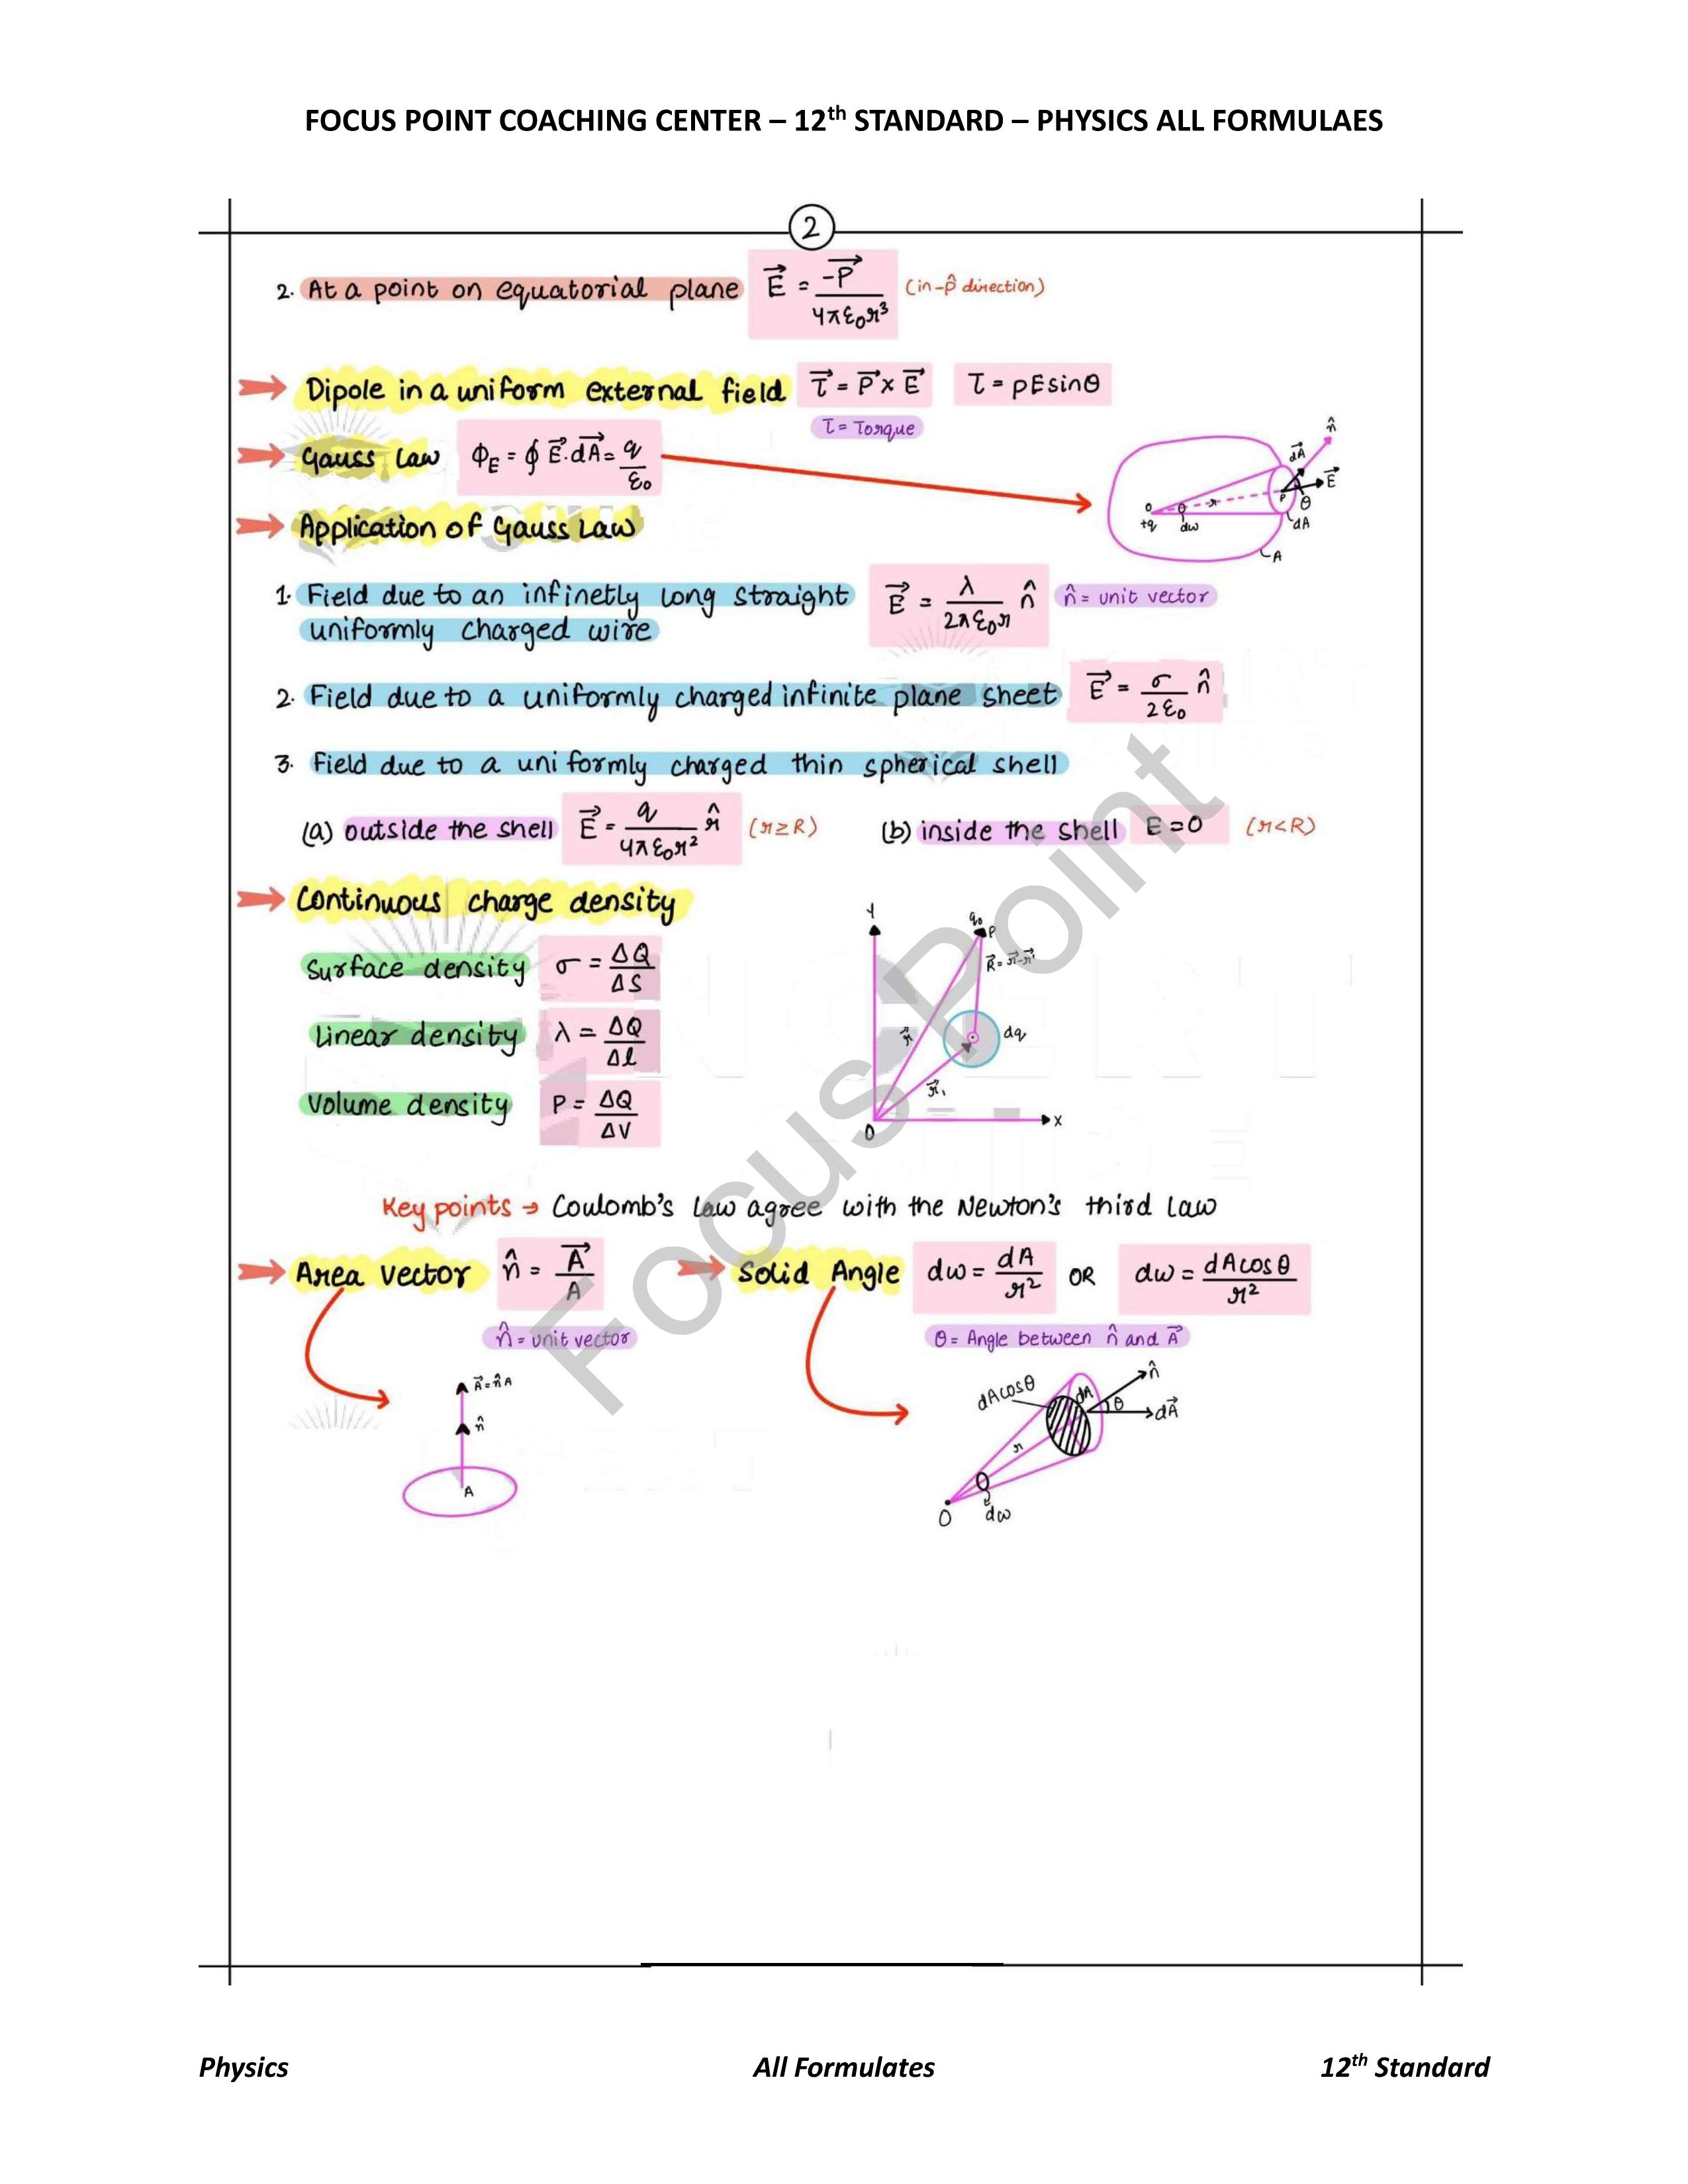 FOCUS POINT COACHING CENTER – 12th STANDARD – PHYSICS ALL FORMULAES
2
2. At a point on equatorial plane E⃗ = -P⃗ / 4πε₀r³ (in -p̂ direction)
Dipole in a uniform external field τ⃗ = P⃗ x E⃗ τ = pEsinθ
τ = Torque
Gauss Law Φ_E = ∮ E⃗.dA⃗ = q/ε₀
n̂
dA⃗
E⃗
P
θ
r
O
θ
+q
dω
dA
A
Application of Gauss Law
1. Field due to an infinetly long straight E⃗ = λ / 2πε₀r n̂ n̂ = unit vector
uniformly charged wire
2. Field due to a uniformly charged infinite plane sheet E⃗ = σ / 2ε₀ n̂
3. Field due to a uniformly charged thin spherical shell
(a) outside the shell E⃗ = q / 4πε₀r² r̂ (r≥R) (b) inside the shell E=0 (r<R)
Continuous charge density
Surface density σ = ΔQ/ΔS
Linear density λ = ΔQ/Δl
Volume density P = ΔQ/ΔV
Y
q₀
P
R⃗ = r⃗-r⃗'
r⃗
dq
r⃗₁
O
X
Key points → Coulomb's law agree with the Newton's third law
Area vector n̂ = A⃗/A Solid Angle dω = dA/r² OR dω = dAcosθ/r²
n̂ = unit vector θ = Angle between n̂ and A⃗
A⃗ = n̂A
n̂
A
dAcosθ
dA
n̂
θ
dA⃗
r
O
dω
Focus Point
Physics All Formulates 12th Standard